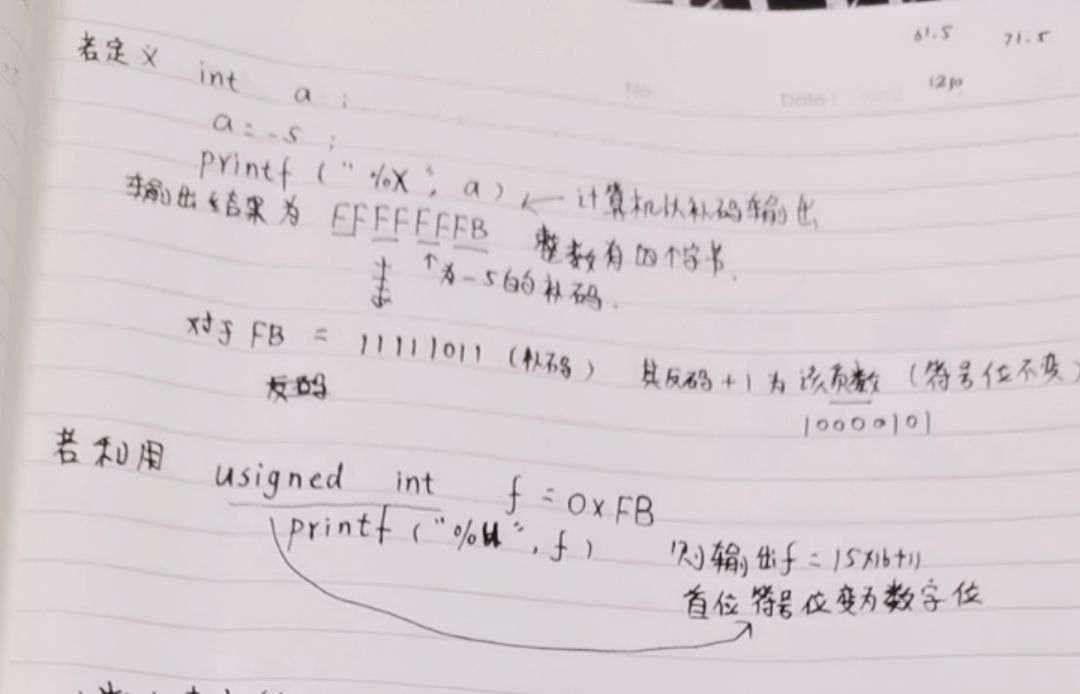 61.5 71.5
No. Date: 1210
若定义 int a ;
a = -5 ;
printf ( " %X ", a ) ← 计算机以补码输出
输出结果为 FFFFFFFB 整数有四个字节.
↑为-5的补码.
对于 FB = 11111011 (补码) 其反码+1为该负数 (符号位不变)
反码 10000101
若利用 usigned int f = 0xFB
printf ( "%u", f ) 则输出f = 15×16+11
首位符号位变为数字位